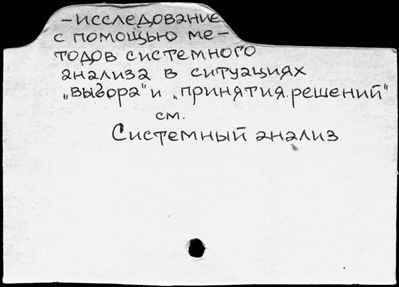 -исследование
с помощью ме-
тодов системного
анализа в ситуациях
„выбора" и „принятия решений"
см.
Системный анализ